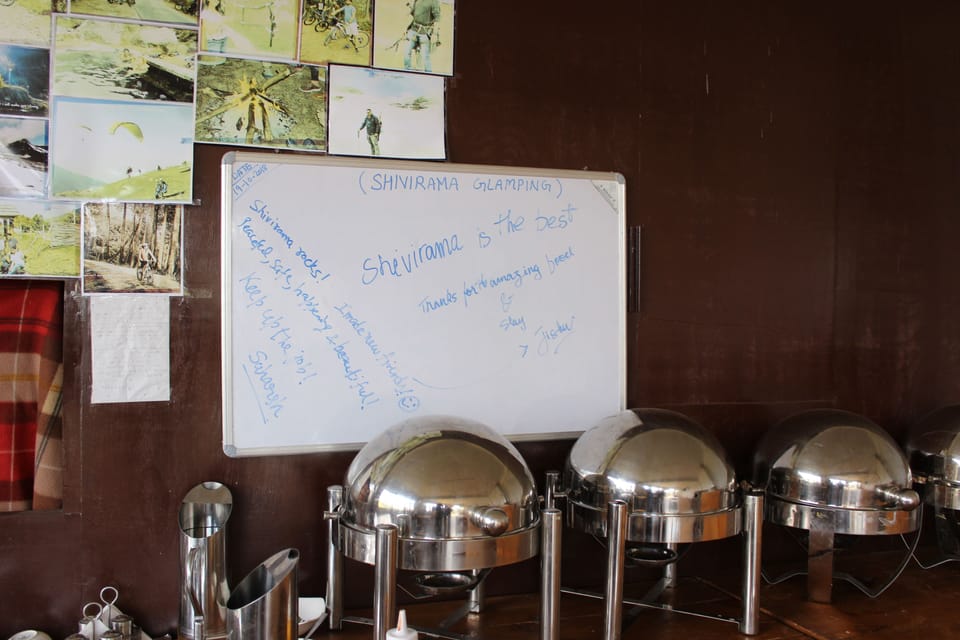 DATE
19-10-2018
(SHIVIRAMA GLAMPING)
Shivirama rocks!
Peaceful, safe, happening & beautiful!
I made new friends!
Keep up the
Shevirama is the best
Thanks for the amazing
&
stay